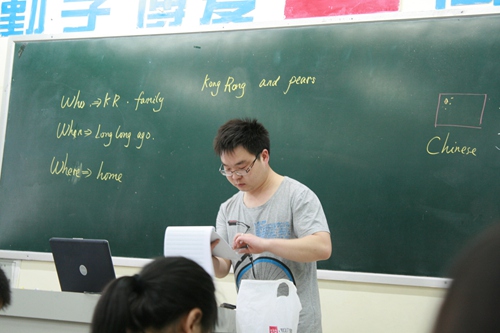 勤学博爱
Kong Rong and pears
Who ⇒ K R . family
When ⇒ Long long ago.
Where ⇒ home
Chinese